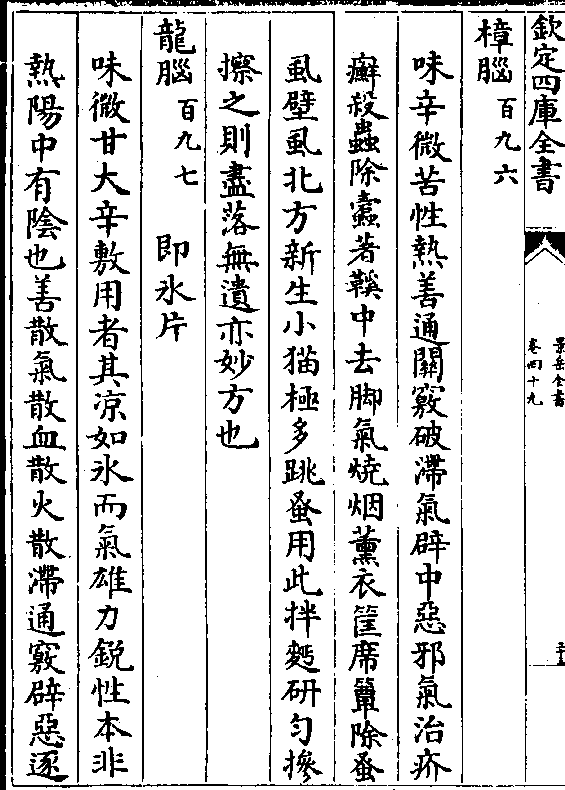 欽定四庫全書
景岳全書
卷四十九
樟腦百九六
味辛微苦性熱善通關竅破滯氣辟中惡邪氣治疥
癬殺蟲除蠹著鞵中去脚氣燒烟薰衣筐席簟除蚤
虱壁虱北方新生小猫極多跳蚤用此拌麪研勻摻
擦之則盡落無遺亦妙方也
龍腦百九七 即氷片
味微甘大辛敷用者其凉如氷而氣雄力銳性本非
熱陽中有陰也善散氣散血散火散滯通竅辟惡逐